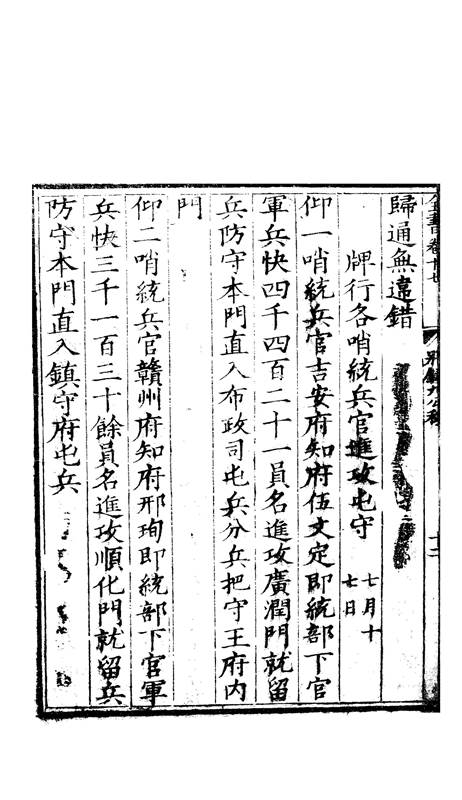 歸通無違錯
牌行各哨統兵官進攻屯守 七月十七日
仰一哨統兵官吉安府知府伍文定即統部下官
軍兵快四千四百二十一員名進攻廣潤門就留
兵防守本門直入布政司屯兵分兵把守王府内
門
仰二哨統兵官贛州府知府邢珣即統部下官軍
兵快三千一百三十餘員名進攻順化門就留兵
防守本門直入鎮守府屯兵